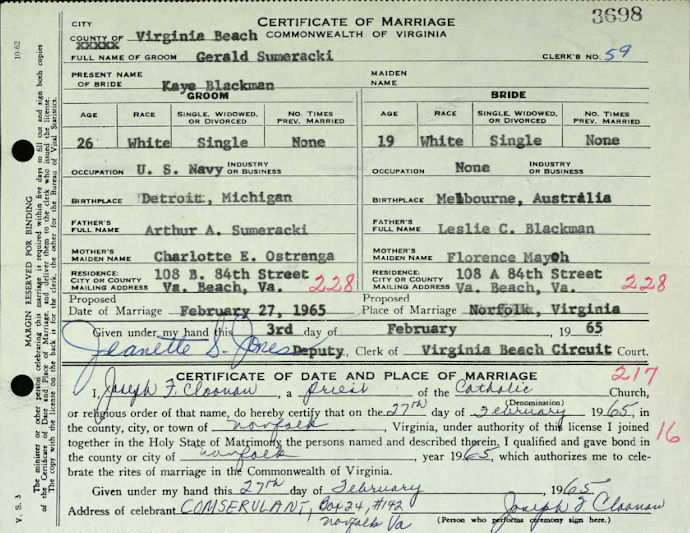 3698
CERTIFICATE OF MARRIAGE
CITY
COUNTY OF Virginia Beach COMMONWEALTH OF VIRGINIA
XXXXX
FULL NAME OF GROOM Gerald Sumeracki CLERK'S NO. 59
PRESENT NAME OF BRIDE Kaye Blackman MAIDEN NAME
GROOM BRIDE
AGE RACE SINGLE, WIDOWED, OR DIVORCED NO. TIMES PREV. MARRIED AGE RACE SINGLE, WIDOWED, OR DIVORCED NO. TIMES PREV. MARRIED
26 White Single None 19 White Single None
OCCUPATION U. S. Navy INDUSTRY OR BUSINESS OCCUPATION None INDUSTRY OR BUSINESS
BIRTHPLACE Detroit, Michigan BIRTHPLACE Melbourne, Australia
FATHER'S FULL NAME Arthur A. Sumeracki FATHER'S FULL NAME Leslie C. Blackman
MOTHER'S MAIDEN NAME Charlotte E. Ostrenga MOTHER'S MAIDEN NAME Florence
RESIDENCE: 108 B. 84th Street RESIDENCE: 108 A 84th Street
CITY OR COUNTY MAILING ADDRESS Va. Beach, Va. 228 CITY OR COUNTY MAILING ADDRESS Va. Beach, Va. 228
Proposed Date of Marriage February 27, 1965 Proposed Place of Marriage Norfolk, Virginia
Given under my hand this 3rd day of February 1965
Jeanette S. Jones Deputy, Clerk of Virginia Beach Circuit Court.
CERTIFICATE OF DATE AND PLACE OF MARRIAGE 217
I, Joseph F. Cloonan, a priest of the Catholic Church,
(Denomination)
or religious order of that name, do hereby certify that on the 27th day of February 1965, in
the county, city, or town of Norfolk, Virginia, under authority of this license I joined
together in the Holy State of Matrimony the persons named and described therein. I qualified and gave bond in 16
the county or city of Norfolk, year 1965, which authorizes me to cele-
brate the rites of marriage in the Commonwealth of Virginia.
Given under my hand this 27th day of February, 1965
Address of celebrant COMSERVLANT, Box 24, #142 Joseph F. Cloonan
Norfolk Va (Person who performs ceremony sign here.)
10-62
MARGIN RESERVED FOR BINDING
The minister or other person celebrating this marriage is required within five days to fill out and sign both copies
of the Certificate of Date and Place of Marriage and deliver them to the clerk who issued the license.
The copy with the license on the back is for the clerk, the other for the Bureau of Vital Statistics.
V. S. 3